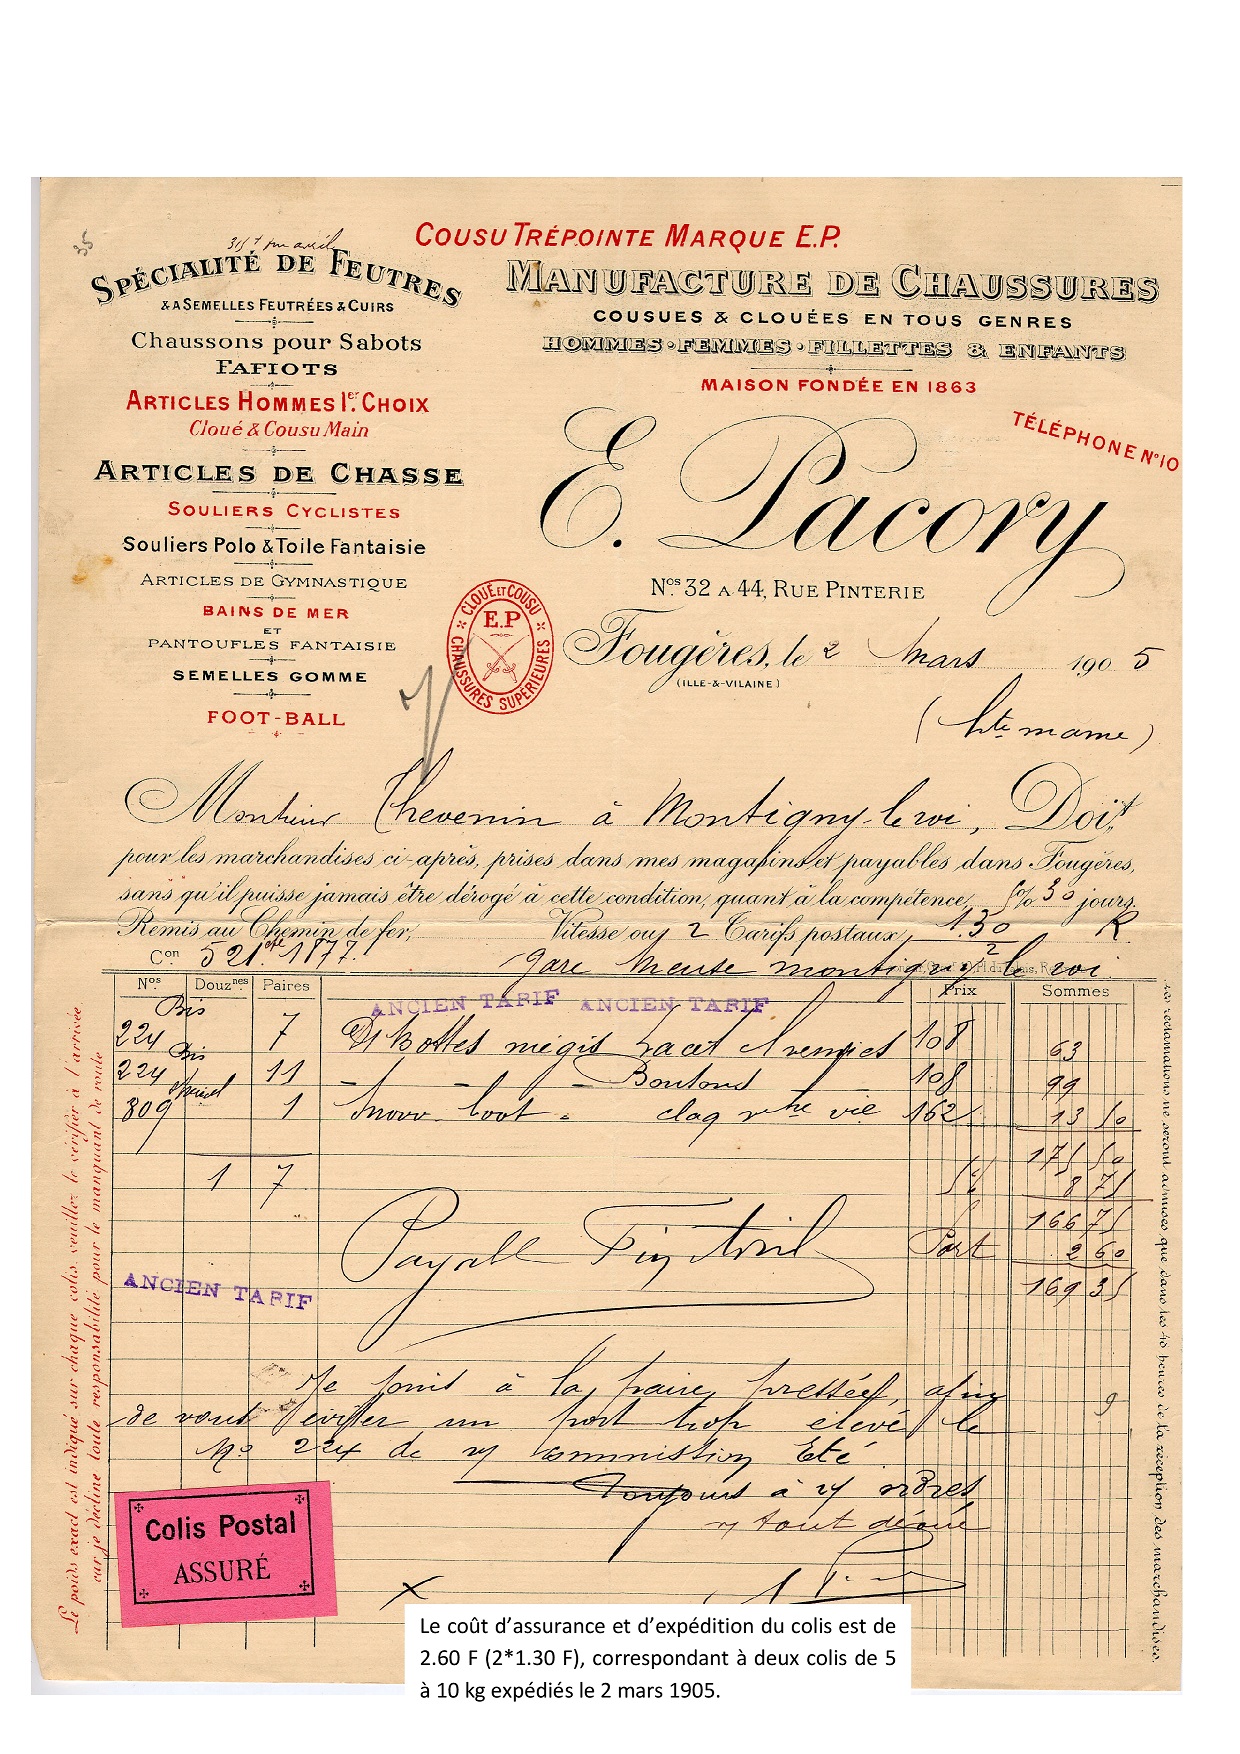 35
COUSU TRÉPOINTE MARQUE E.P.
SPÉCIALITÉ DE FEUTRES
& A SEMELLES FEUTRÉES & CUIRS
Chaussons pour Sabots
FAFIOTS
ARTICLES HOMMES 1er. CHOIX
Cloué & Cousu Main
ARTICLES DE CHASSE
SOULIERS CYCLISTES
Souliers Polo & Toile Fantaisie
ARTICLES DE GYMNASTIQUE
BAINS DE MER
ET
PANTOUFLES FANTAISIE
SEMELLES GOMME
FOOT-BALL
MANUFACTURE DE CHAUSSURES
COUSUES & CLOUÉES EN TOUS GENRES
HOMMES • FEMMES • FILLETTES & ENFANTS
MAISON FONDÉE EN 1863
TÉLÉPHONE N° 10
E. Pacory
Nos 32 A 44, RUE PINTERIE
CLOUÉ ET COUSU
E.P
CHAUSSURES SUPÉRIEURES
Fougères, le 2 Mars 1905
(ILLE-&-VILAINE)
(Hte marne)
Monsieur Thevenin à Montigny-le roi, Doit
pour les marchandises ci-après, prises dans mes magasins et payables dans Fougères,
sans qu'il puisse jamais être dérogé à cette condition, quant à la compétence, 5% 30 jours.
Remis au Chemin de fer, Vitesse ou 2 Tarifs postaux 1.30 R
Con 521 1877. 2
gare Meuse montigny le roi
Nos Douznes Paires Prix Sommes
ANCIEN TARIF ANCIEN TARIF
224 Bis 7 Bottes mégis lacet 108 63
224 Bis 11 - - - Boutons 108 99
809 1 162 13 50
175 50
1 7 5% 8 75
166 75
Payable Fin Avril Port 2 60
169 35
ANCIEN TARIF
Je joins à la paire pressée, afin
de vous éviter un port trop élevé le
No 224 de commission Eté
Toujours à vos ordres
tout dévoué
Colis Postal
ASSURÉ
Le poids exact est indiqué sur chaque colis, veuillez le vérifier à l'arrivée
car je décline toute responsabilité pour le manquant de route
Les réclamations ne seront admises que dans les 48 heures de la réception des marchandises.
Le coût d'assurance et d'expédition du colis est de
2.60 F (2*1.30 F), correspondant à deux colis de 5
à 10 kg expédiés le 2 mars 1905.